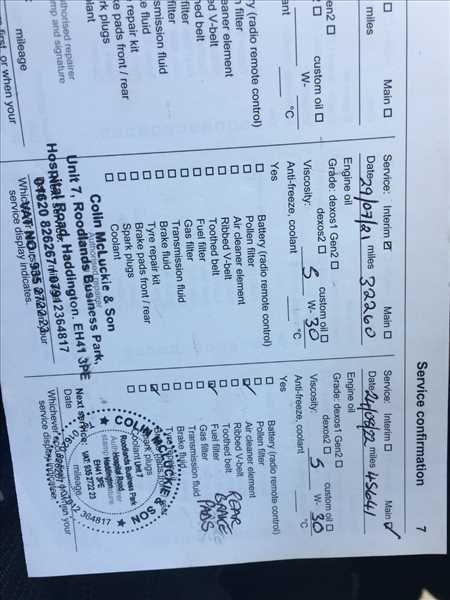 Service confirmation 7
Main ☐
miles
Gen2 ☐
custom oil ☐
W-
°C
ttery (radio remote control)
n filter
cleaner element
d V-belt
thed belt
filter
filter
smission fluid
ke fluid
repair kit
ke pads front / rear
k plugs
uthorised repairer
mp and signature
mileage
n first, or when your
Service: Interim ☑ Main ☐
Date 29/07/21 miles 32260
Engine oil
Grade: dexos1 Gen2 ☐
dexos2 ☐ custom oil ☐
Viscosity: 5 W- 30
Anti-freeze, coolant °C
Yes
☐ Battery (radio remote control)
☐ Pollen filter
☐ Air cleaner element
☐ Ribbed V-belt
☐ Toothed belt
☐ Fuel filter
☐ Gas filter
☐ Transmission fluid
☐ Brake fluid
☐ Tyre repair kit
☐ Brake pads front / rear
☐ Spark plugs
☐ Coolant
Colin McLuckie & Son
Unit 7, Roodlands Business Park,
Hospital Road, Haddington. EH41 3PE
01620 826267 / 07912364817
VAT NO. 935 2722 23
service display indicates.
Service: Interim ☐ Main ☑
Date 24/08/22 miles 45641
Engine oil
Grade: dexos1 Gen2 ☐
dexos2 ☐ custom oil ☐
Viscosity: 5 W- 30
Anti-freeze, coolant °C
Yes
☐ Battery (radio remote control)
☐ Pollen filter
☑ Air cleaner element
☐ Ribbed V-belt
☐ Toothed belt
☑ Fuel filter
☐ Gas filter
☐ Transmission fluid
☑ Brake fluid
REAR
BRAKE
PADS
Spark plugs
Coolant
COLIN McLUCKIE & SON
Unit 7
Roodlands Business Park
Hospital Road
Haddington
EH41 3PE
VAT: 935 2722 23
Next service:
Date mileage
service display indicates.